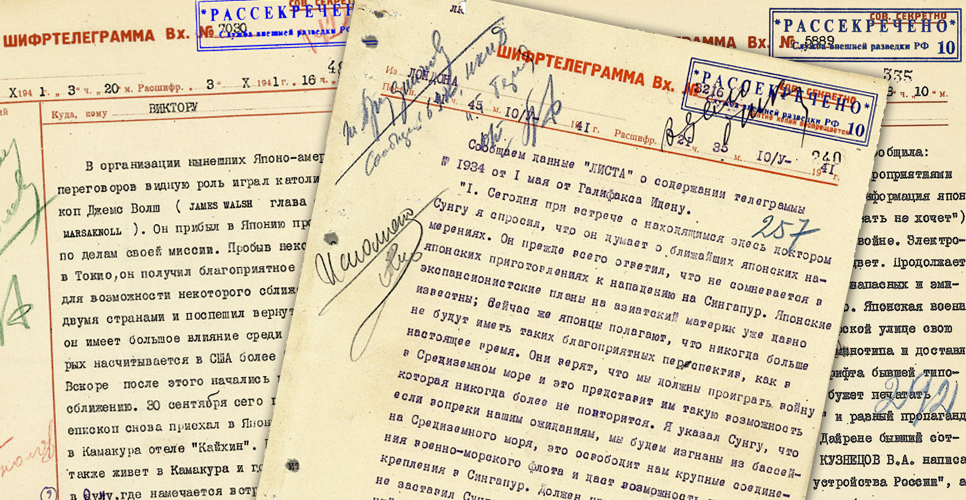 ШИФРТЕЛЕГРАММА Вх. № 7030
СОВ. СЕКРЕТНО
*РАССЕКРЕЧЕНО*
Служба внешней разведки РФ
X 194 1 г. 3 ч. 20 м. Расшифр. 3 X 1941 г. 16 ч. 4
Куда, кому ВИКТОРУ
В организации вынешних Японо-амер
переговоров видную роль играл католи
коп Джемс Волш ( JAMES WALSH глава
MARSAKNOLL ). Он прибыл в Японию пр
по делам своей миссии. Пробыв неко
в Токио, он получил благоприятное
для возможности некоторого сближе
двумя странами и поспешил вернут
он имеет большое влияние среди
рых насчитывается в США более
Вскоре после этого начались
сближению. 30 сентября сего г
епископ снова приехал в Япон
в Камакура отеле "Кайхин".
также живет в Камакура и г
где намечается встр
ШИФРТЕЛЕГРАММА Вх. №
*РАССЕКРЕЧЕНО*
Служба внешней разведки РФ 10
Из ЛОНДОНА
45 м. 10/У- 41 г. Расшифр. 21 ч. 35 м. 10/У- 1941
240
257
Исполнено
Сообщаем данные "ЛИСТА" о содержании телеграммы
№ 1934 от I мая от Галифакса Идену.
"I. Сегодня при встрече с находящимся здесь доктором
Сунгу я спросил, что он думает о ближайших японских на-
мерениях. Он прежде всего ответил, что не сомневается в
японских приготовлениях к нападению на Сингапур. Японские
экспансионистские планы на азиатский материк уже давно
известны; Вейчас же японцы полагают, что никогда больше
не будут иметь таких благоприятных перспектив, как в
настоящее время. Они верят, что мы должны проиграть войну
в Средиземном море и это представит им такую возможность
которая никогда более не повторится. Я указал Сунгу, что
если вопреки нашим ожиданиям, мы будем изгнаны из бассей-
на Средиземного моря, это освободит нам крупные соедине-
ния военно-морского флота и даст возможность
крепления в Сингапур. Должен
не заставил Сунг
РАММА Вх. № 5889
СОВ. СЕКРЕТНО
*РАССЕКРЕЧЕНО*
Служба внешней разведки РФ 10
335
10 м.
ообщила:
роприятиями
нформация япон
ать не хочет")
войне. Электро-
вет. Продолжает
апасных и эми-
о. Японская военн
ской улице свою
инотипа и доставл
рифта бывшей типо-
бужет печатать
и разный пропаганд
Дайрене бывший сот-
КУЗНЕЦОВ В.А. написа
устройства России", а
292